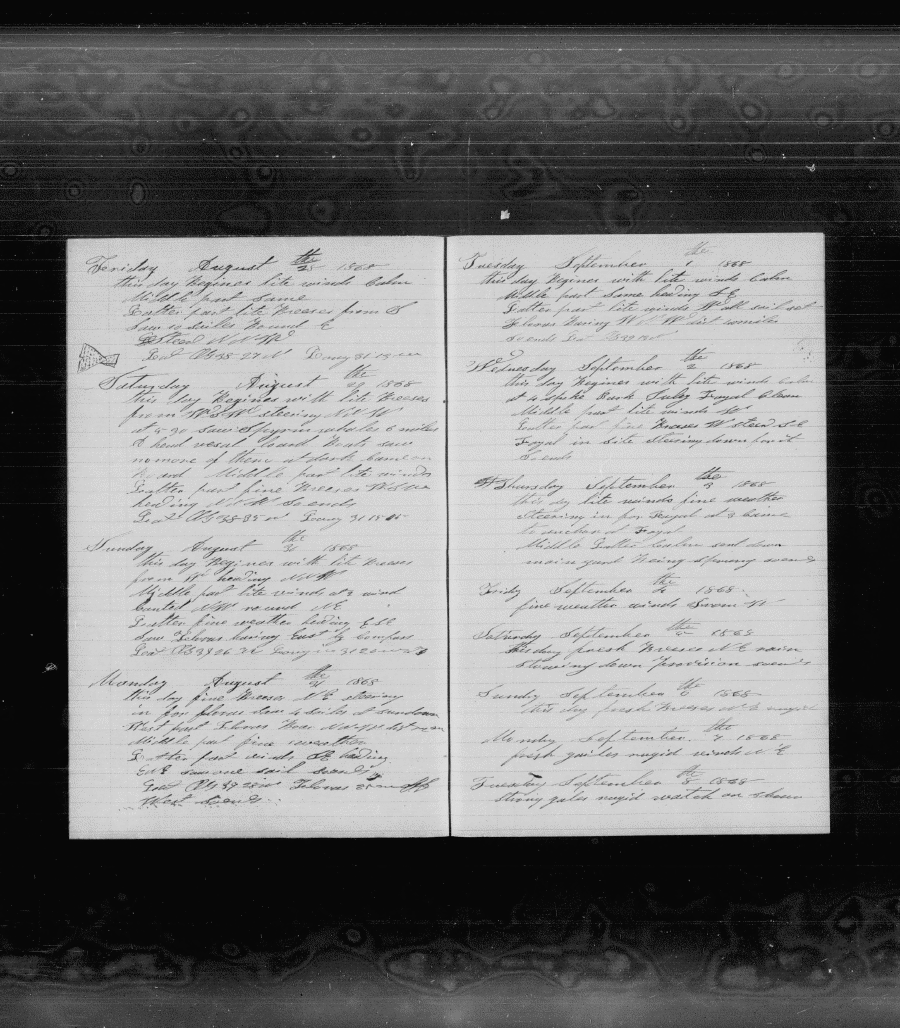 Friday August the 28 1868
this day Begines lite winds Calm
Middle part Same
Latter part lite Breeses from S
Saw 10 Sailes Bound E
Steed N N W
Lat Obs 38 27 N Long 31 13
Saturday August the 29 1868
this day Begines with lite Breeses
from W S W steering N W
at 5-30 Saw Spyrm whales 6 miles
A head Boats saw
no more of them at dark came on
Board Middle part lite winds
Latter part fine Breeses
heading So ends
Lat Obs 38 35 N Long 31 18
Sunday August the 31 1868
this day Begines with lite Breeses
from W heading N W
Middle part lite winds at 3 wind
Canted N W round N E
Latter fine weather heading E S E
Saw Flores baring East by Compass
Lat Obs 39 26 Long in 31 20
Monday August the 31 1868
this day fine Breeses N E steering
in for flores Saw 4 Sailes at sundown
West part Flores Bore
Middle part fine weather
Latter part winds heading
saw one sail So ends
Lat Obs 39 28 Flores
West So ends
Tuesday September the 1 1868
this day Begines with lite winds Calm
Middle part Same heading S E
Latter part lite winds W all sail set
Flores baring W N W dist miles
So ends Lat
Wednesday September the 2 1868
this day Begines with lite winds Calm
at 4 spoke Bark Fayal Clean
Middle part lite winds W
Latter part fine Breeses W steard S E
Fayal in site Steering down for it
So ends
Thursday September the 3 1868
this day lite winds fine weather
Steering in for Fayal at 3 Came
to anchor at Fayal
Middle Latter sent down
main yard being sprung so ends
Friday September the 4 1868
fine weather winds from W
Saturday September the 5 1868
this day fresh Breeses N E rain
Stowing down Provision so ends
Sunday September the 6 1868
this day fresh Breeses N E rugid
Monday September the 7 1868
fresh gailes rugid winds N E
Tuesday September the 8 1868
strong gales rugid watch on shore